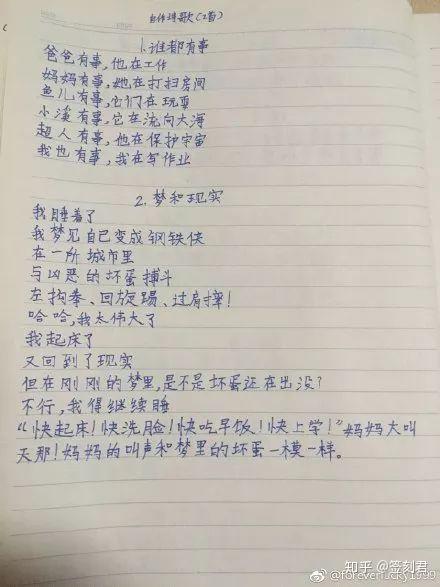 自作诗歌(2首)
1.谁都有事
爸爸有事,他在工作
妈妈有事,她在打扫房间
鱼儿有事,它们在玩耍
小溪有事,它在流向大海
超人有事,他在保护宇宙
我也有事,我在写作业
2.梦和现实
我睡着了
我梦见自己变成钢铁侠
在一所城市里
与凶恶的坏蛋搏斗
左钩拳、回旋踢、过肩摔!
哈哈,我太伟大了
我起床了
又回到了现实
但在刚刚的梦里,是不是坏蛋还在出没?
不行,我得继续睡
“快起床!快洗脸!快吃早饭!快上学!”妈妈大叫
天那!妈妈的叫声和梦里的坏蛋一模一样。
知乎 @签刻君
@foreverlucky1990